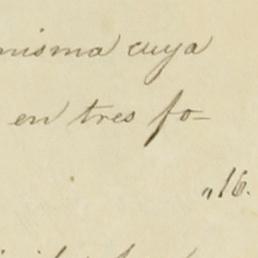 misma cuya
en tres fo-
„16.